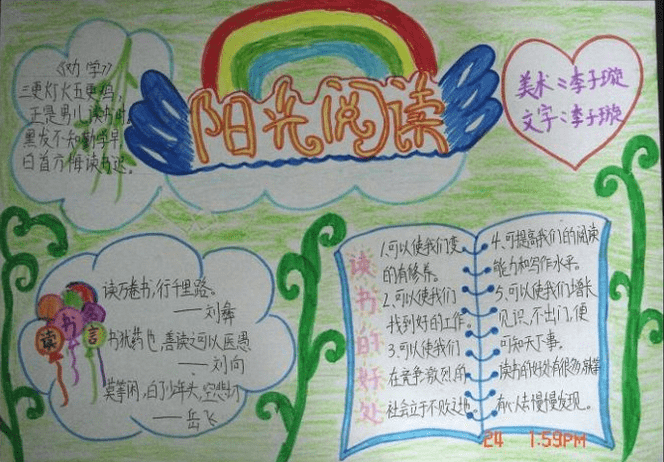 《劝学》
三更灯火五更鸡,
正是男儿读书时。
黑发不知勤学早,
白首方悔读书迟。
阳光阅读
美术:李子璇
文字:李子璇
读书 言
读万卷书,行千里路。
——刘彝
书犹药也,善读之可以医愚
——刘向
莫等闲,白了少年头,空悲切
——岳飞
读书的好处
1.可以使我们变
的有修养。
2.可以使我们
找到好的工作。
3.可以使我们
在竞争激烈的
社会立于不败之地。
4.可提高我们的阅读
能力和写作水平。
5.可以使我们增长
见识,不出门,便
可知天下事。
读书的好处有很多,就等
有心人去慢慢发现。
24 1:59PM